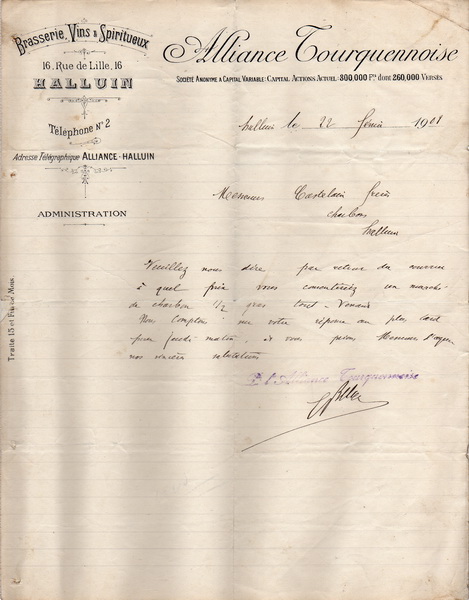 Brasserie, Vins & Spiritueux
16, Rue de Lille, 16
HALLUIN
Téléphone Nº 2
Adresse Télégraphique ALLIANCE-HALLUIN
ADMINISTRATION
Alliance Tourquennoise
SOCIÉTÉ ANONYME A CAPITAL VARIABLE: CAPITAL ACTIONS ACTUEL 300,000 Frs dont 260,000 VERSÉS
Halluin le 22 février 1901
Messieurs Castelain frères
charbons
Halluin
Veuillez nous dire par retour du courrier
à quel prix vous un marché
de charbon 1/2 gras
Nous comptons sur votre réponse au plus tard
pour jeudi matin, & vous prions Messieurs d'agréer
nos sincères salutations
P. l'Alliance Tourquennoise
Traite 15 et Fin de Mois.